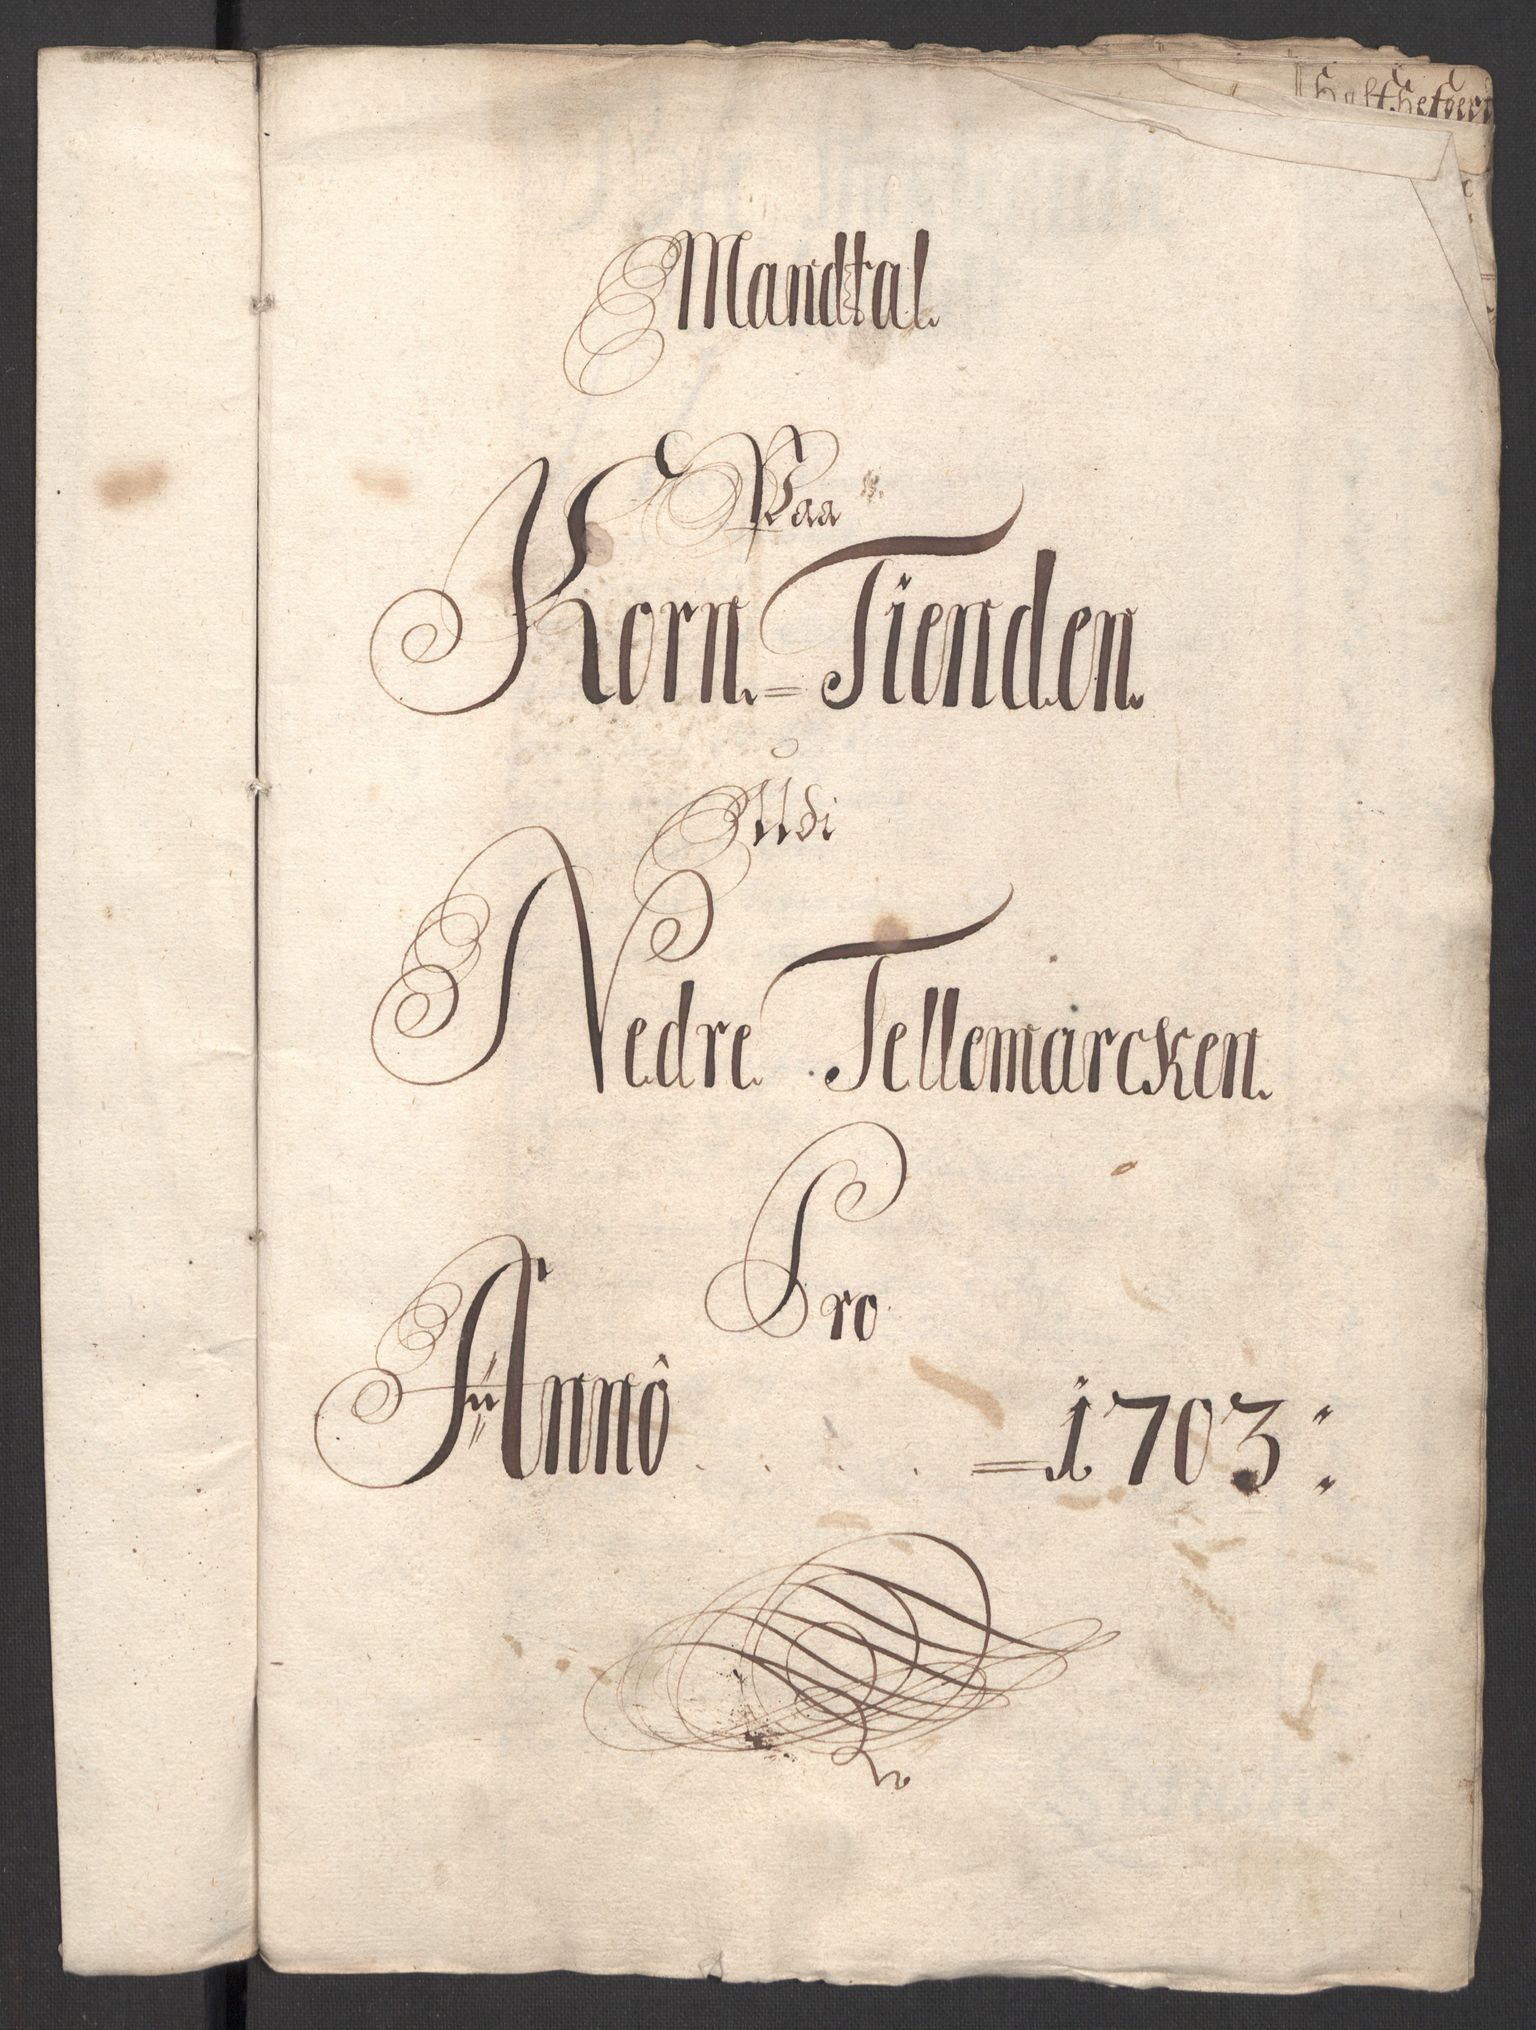 Mandtal.
Paa
Korn.=Tienden.
Udi
Nedre Tellemarcken.
Pro
Annô . . . . =1703: